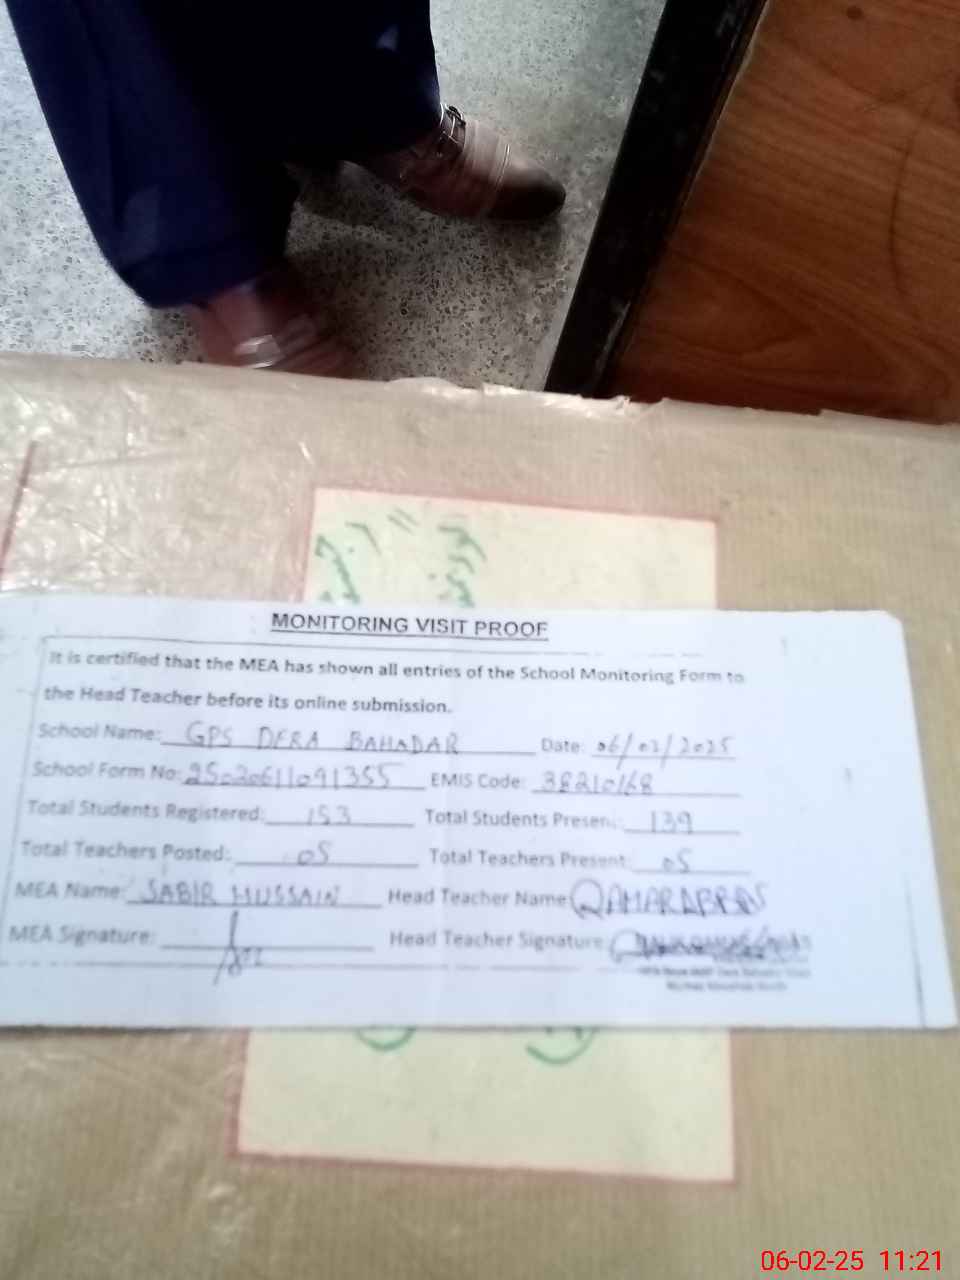 MONITORING VISIT PROOF
It is certified that the MEA has shown all entries of the School Monitoring Form to
the Head Teacher before its online submission.
School Name: GPS DERA BAHADAR Date: 06/02/2025
School Form No: 25020611091355 EMIS Code: 38210168
Total Students Registered: 153 Total Students Present: 139
Total Teachers Posted: 05 Total Teachers Present: 05
MEA Name: SABIR HUSSAIN Head Teacher Name: QAMAR ABBAS
MEA Signature: Head Teacher Signature:
06-02-25 11:21